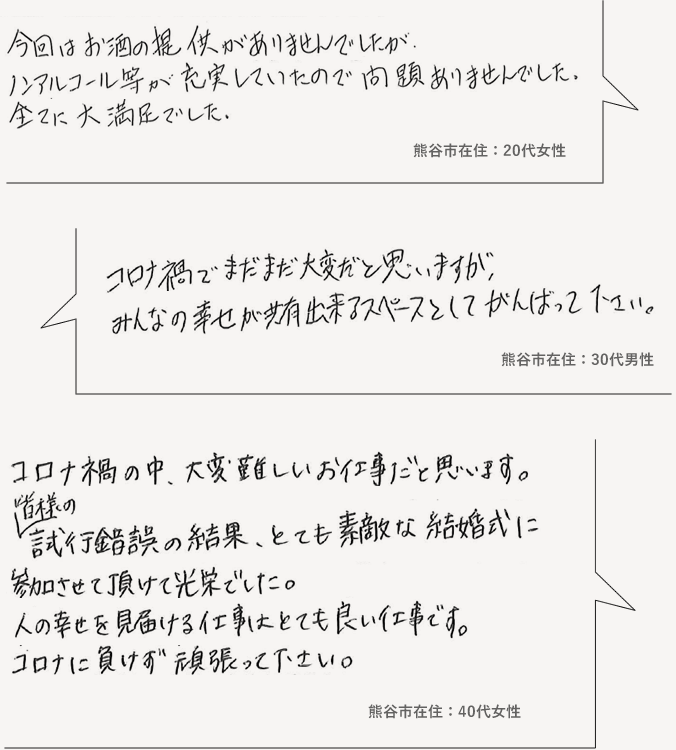 今回はお酒の提供がありませんでしたが、
ノンアルコール等が充実していたので問題ありませんでした。
全てに大満足でした。
熊谷市在住：20代女性
コロナ禍でまだまだ大変だと思いますが、
みんなの幸せが共有出来るスペースとしてがんばって下さい。
熊谷市在住：30代男性
コロナ禍の中、大変難しいお仕事だと思います。
皆様の
試行錯誤の結果、とても素敵な結婚式に
参加させて頂けて光栄でした。
人の幸せを見届ける仕事はとても良い仕事です。
コロナに負けず頑張って下さい。
熊谷市在住：40代女性